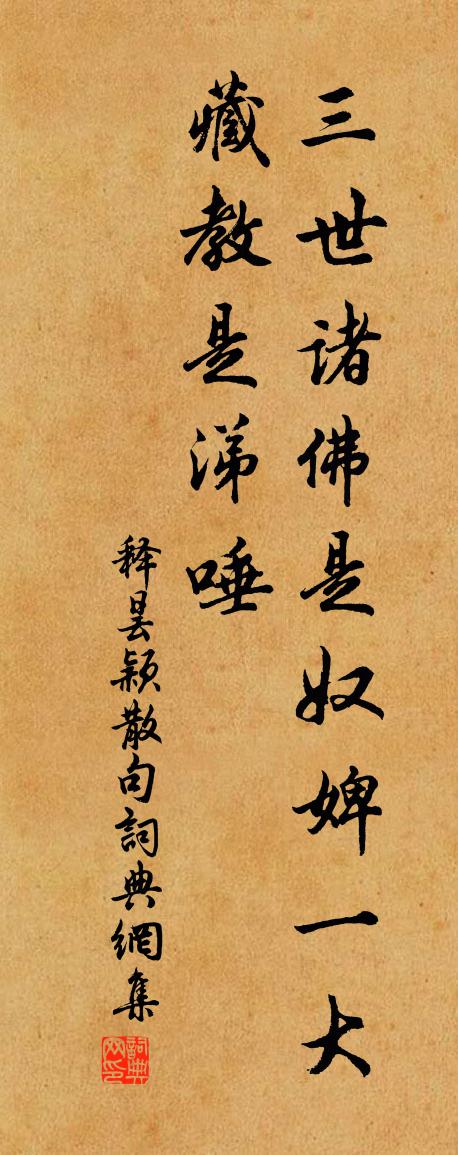 三世诸佛是奴婢一大
藏教是涕唾
释昙颖散句詞典網集
詞典网印